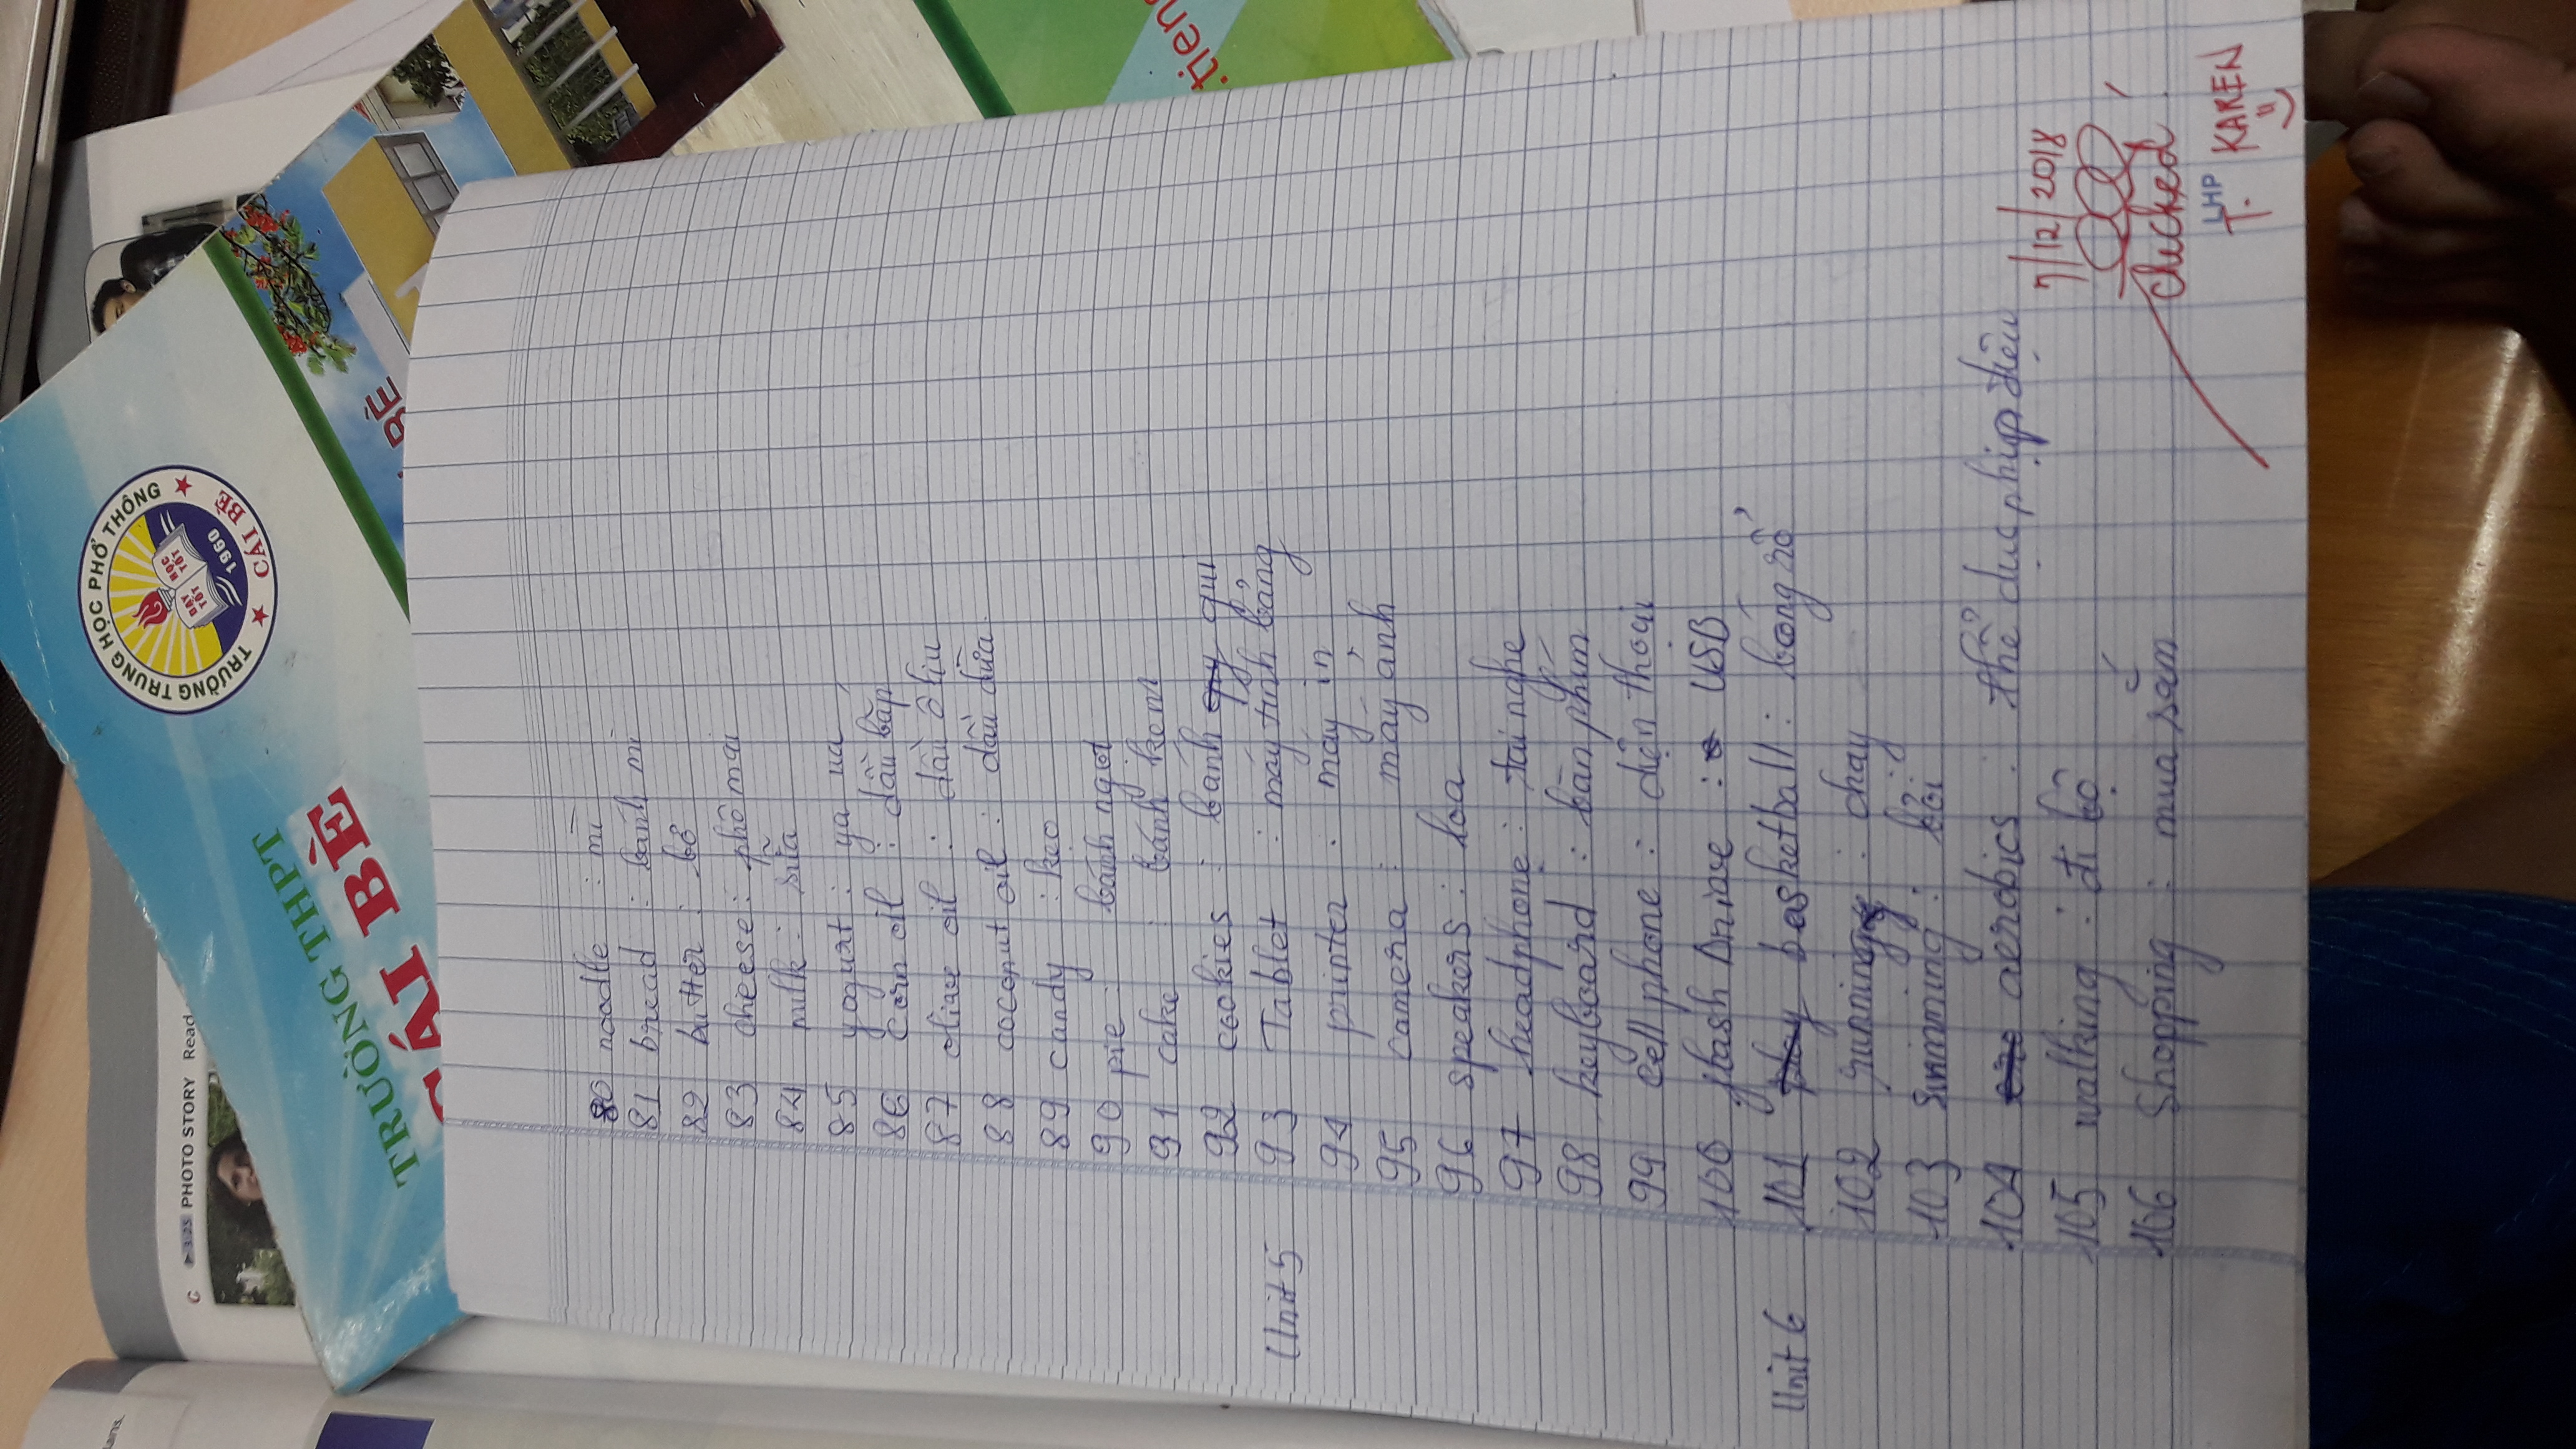 lans.
C ▶3:25 PHOTO STORY Read
TRƯỜNG TRUNG HỌC PHỔ THÔNG
DẠY TỐT HỌC TỐT
1960
★ CÁI BÈ ★
TRƯỜNG THPT
CÁI BÈ
BÈ
.tien
80 noodle : mì
81 bread : bánh mì
82 butter : bơ
83 cheese : phô mai
84 milk : sữa
85 yogurt : ya ua
86 corn oil : dầu bắp
87 oliave oil : dầu ô liu
88 coconut oil : dầu dừa
89 candy : kẹo
90 pie : bánh ngọt
91 cake : bánh kem
92 cookies : bánh qui
Unit 5 93 Tablet : máy tính bảng
94 printer : máy in
95 camera : máy ảnh
96 speakers : loa
97 headphone : tai nghe
98 keyboard : bàn phím
99 cell phone : điện thoại
100 flash Driave : USB
Unit 6 101 play basketball : bóng rổ
102 running : chạy
103 swimming : bơi
104 aerobics : thể dục nhịp điệu
105 walking : đi bộ
106 Shopping : mua sắm
7/12/2018
checked !
LHP
T. KAREN